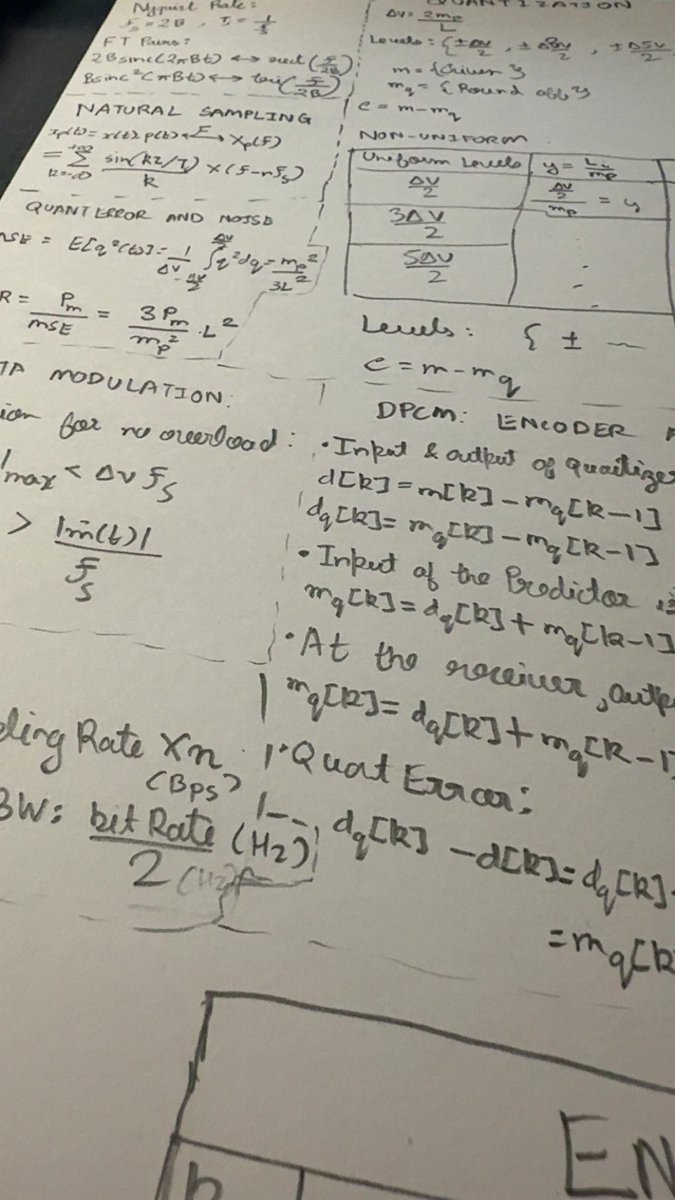 Nyquist Rate:
fs = 2B , Ts = 1/fs
FT Pairs:
2Bsinc(2πBt) ↔ rect(f/2B)
Bsinc²(πBt) ↔ tri(f/2B)
NATURAL SAMPLING
= Σ k=-∞ +∞ sin(kπ/Ts)/k X(f-nfs)
QUANT ERROR AND NOISE
MSE = E[q²(t)] = 1/ΔV ∫ -ΔV/2 ΔV/2 q²dq = mp²/3L²
R = Pm/MSE = 3Pm/mp² · L²
TA MODULATION:
ion for no overload:
max < ΔV fs
> |ṁ(t)|/fs
ling Rate × n
(Bps)
BW: bit Rate/2 (Hz)
(Hz)
QUANTIZATION
ΔV = 2mp/L
Levels: {±ΔV/2, ±3ΔV/2, ±5ΔV/2
m = {Given}
mq = {Round off}
e = m - mq
NON-UNIFORM
Uniform Levels y = Lu/mp
ΔV/2 ΔV/2/mp = y
3ΔV/2
5ΔV/2
Levels: { ± —
e = m - mq
DPCM: ENCODER
• Input & output of quantizer
d[k] = m[k] - mq[k-1]
dq[k] = mq[k] - mq[k-1]
• Input of the Predictor is
mq[k] = dq[k] + mq[k-1]
• At the receiver, outp
mq[k] = dq[k] + mq[k-1]
• Quat Error:
dq[k] - d[k] = dq[k] -
= mq[k
EN
b